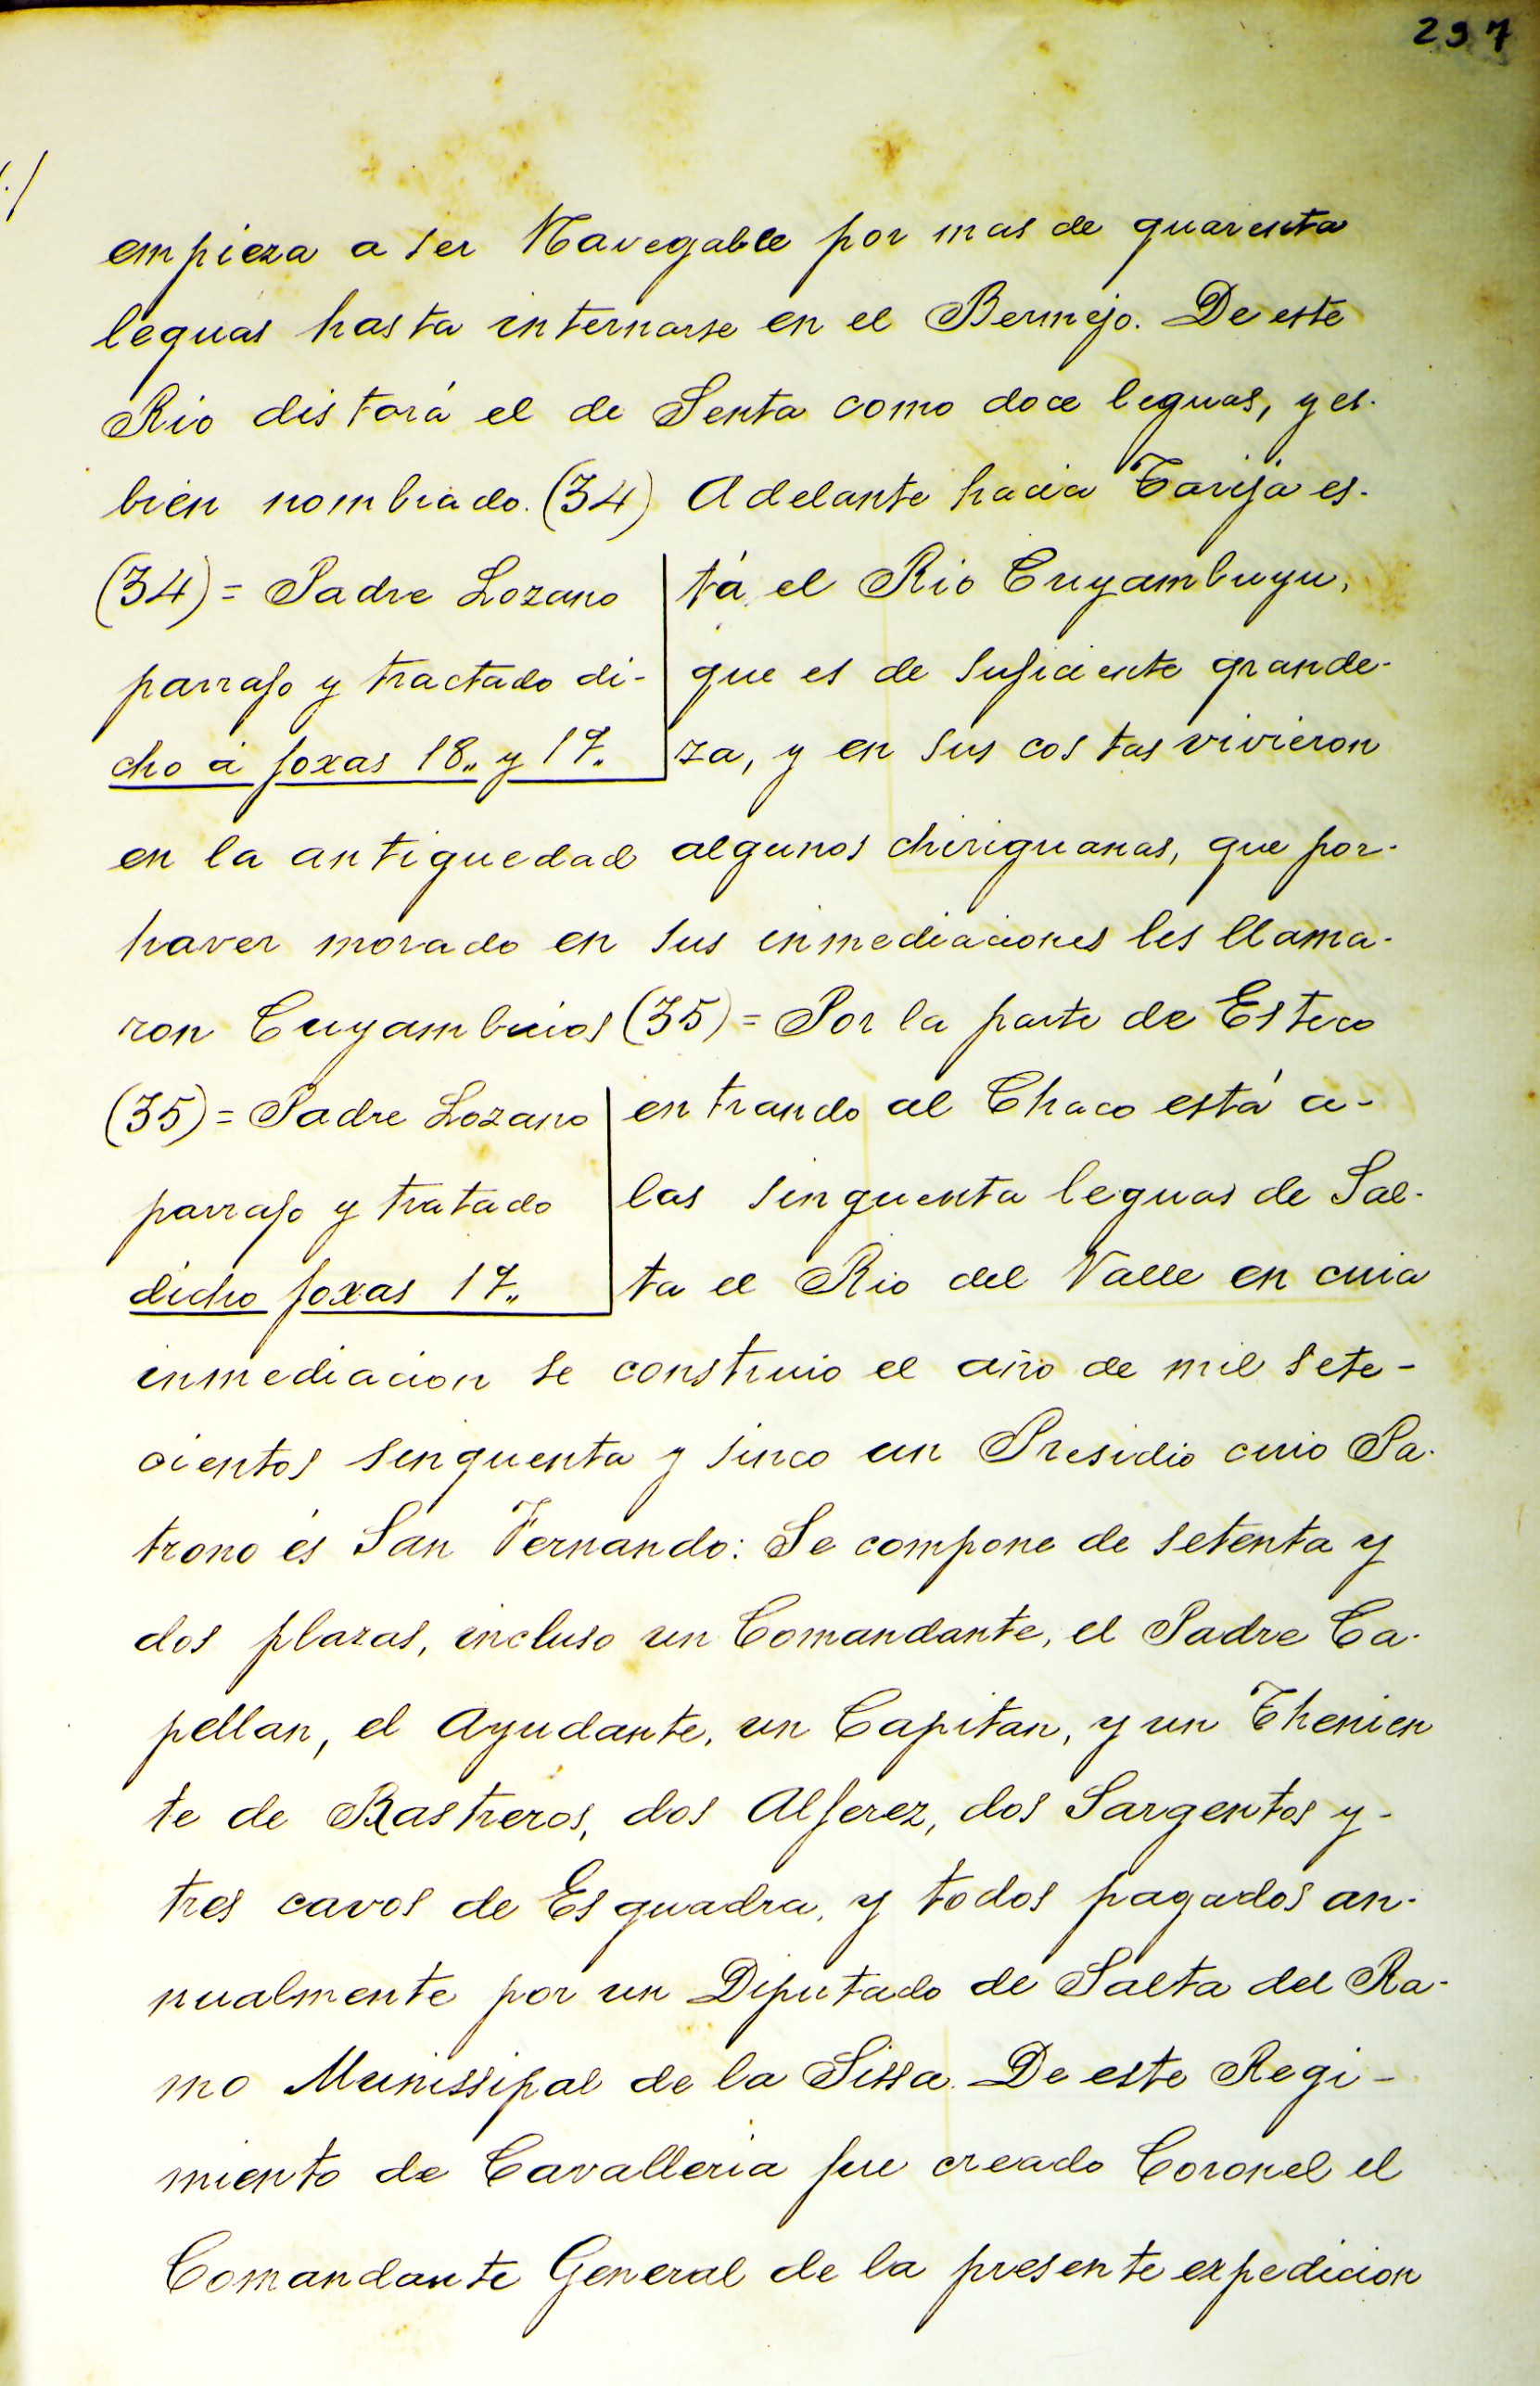 297
./
empieza a ser Navegable por mas de quarenta
leguas hasta internarse en el Bermejo. De este
Rio distará el de Senta como doce leguas, y es.
bien nombrado. (34) Adelante hacia Tarija es-
(34) = Padre Lozano
parrafo y tractado di-
cho á foxas 18,, y 17,,
tá el Rio Cuyambuyu,
que es de suficiente grande-
za, y en sus costas vivieron
en la antiguedad algunos chiriguanas, que por-
haver morado en sus inmediaciones les llama-
ron Cuyambuios (35) = Por la parte de Esteco
(35) = Padre Lozano
parrafo y tratado
dicho foxas 17,,
entrando al Chaco está a-
las sinquenta leguas de Sal-
ta el Rio del Valle en cuia
inmediacion se construio el año de mil sete-
cientos senquenta y sinco un Presidio cuio Pa-
trono és San Fernando: Se compone de setenta y
dos plazas, incluso un Comandante, el Padre Ca-
pellan, el Ayudante, un Capitan, y un Thenien
te de Rastreros, dos Alferez, dos Sargentos y-
tres cavos de Esquadra, y todos pagados an-
nualmente por un Diputado de Salta del Ra-
mo Munissipal de la Sissa. De este Regi-
miento de Cavalleria fue creado Coronel el
Comandante General de la presente expedicion